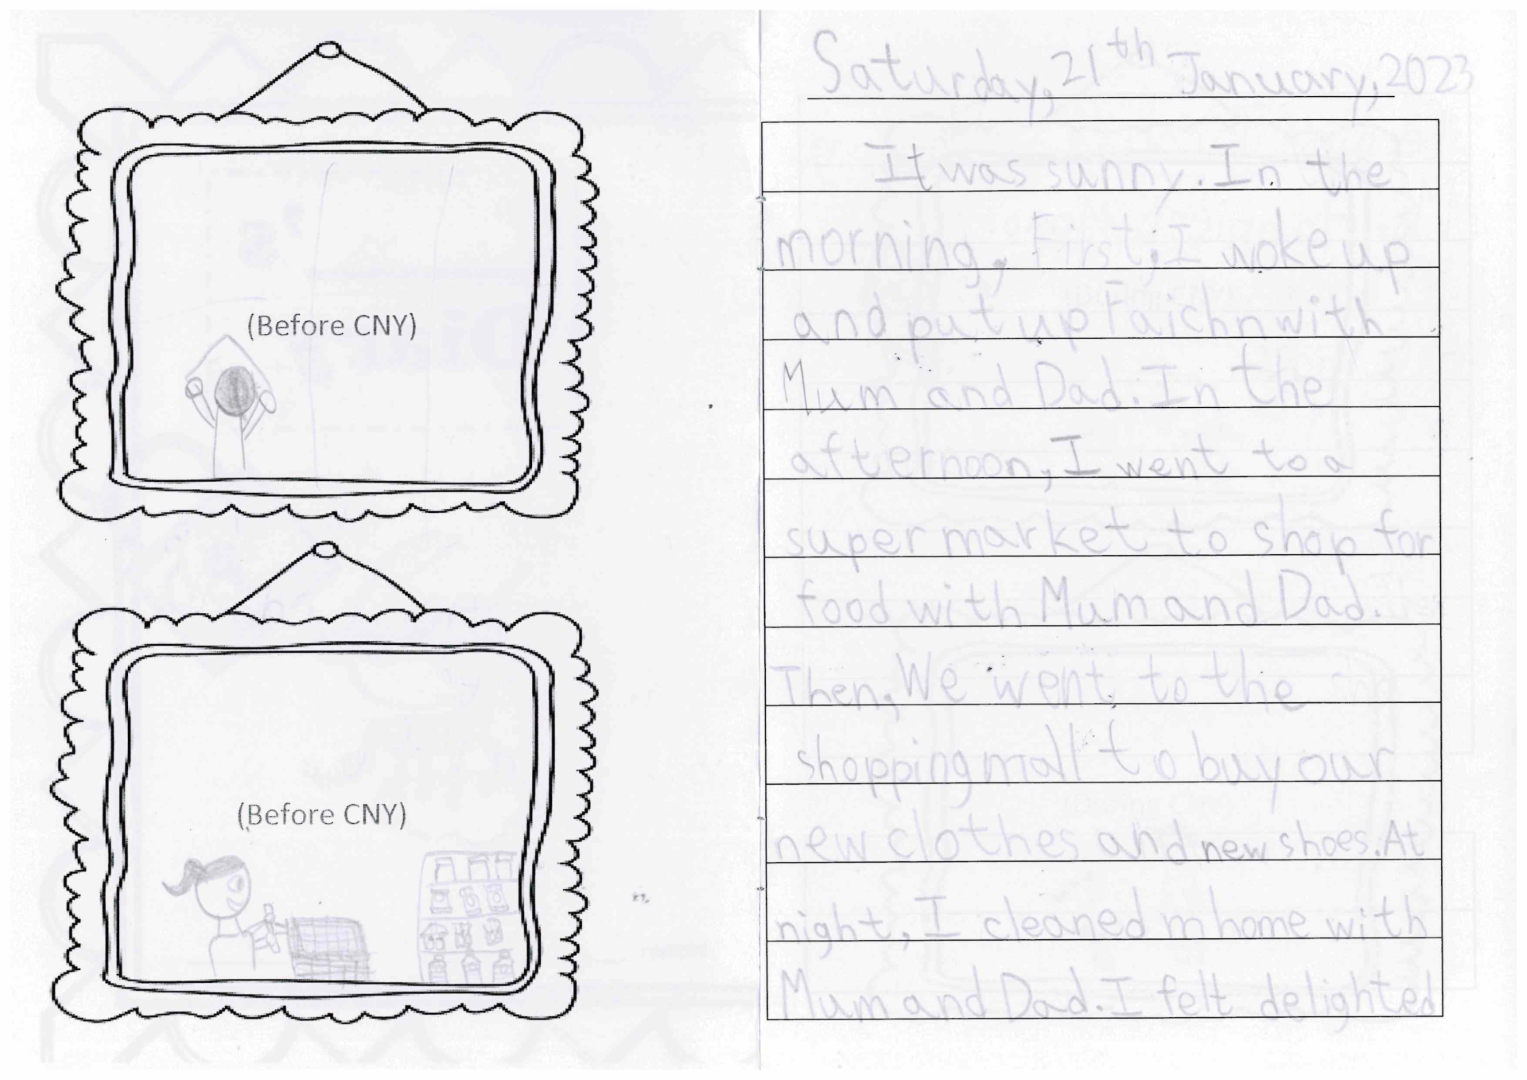 (Before CNY)
(Before CNY)
Saturday, 21th January, 2023
It was sunny. In the
morning, First, I woke up
and put up Faichn with
Mum and Dad. In the
afternoon, I went to a
super market to shop for
food with Mum and Dad.
Then, We went to the
shopping mall to buy our
new clothes and new shoes. At
night, I cleaned m home with
Mum and Dad. I felt delighted